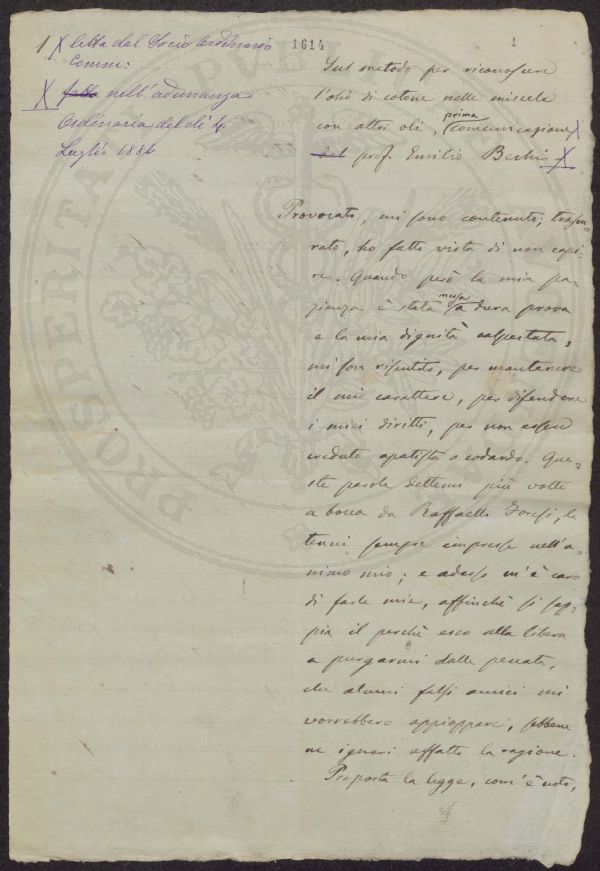 1 X letta dal Socio Ordinario
Comm:
X fatta nell'adunanza
Ordinaria del dì 4
Luglio 1886
1614
1
Sul metodo per riconoscere
l'olio di cotone nelle miscele
con altri oli, prima comunicazione X
del prof. Emilio Bechi X
Provocato, mi sono contenuto; trascu=
rato, ho fatto vista di non capi=
re. Quando però la mia pa=
zienza è stata messa a dura prova
e la mia dignità calpestata,
mi son risentito, per mantenere
il mio carattere, per difendere
i miei diritti, per non essere
creduto apatista o codardo. Que=
ste parole dettemi più volte
a bocca da Raffaello Foresi, le
tenni sempre impresse nell'a=
nimo mio; e adesso m'è caro
di farle mie, affinchè si sap=
pia il perchè esco alla libera
a purgarmi dalla peccata,
che alcuni falsi amici mi
vorrebbero appioppare, sebbene
ne ignari affatto la ragione.
Proposta la legge, com'è noto,
PROSPERITA